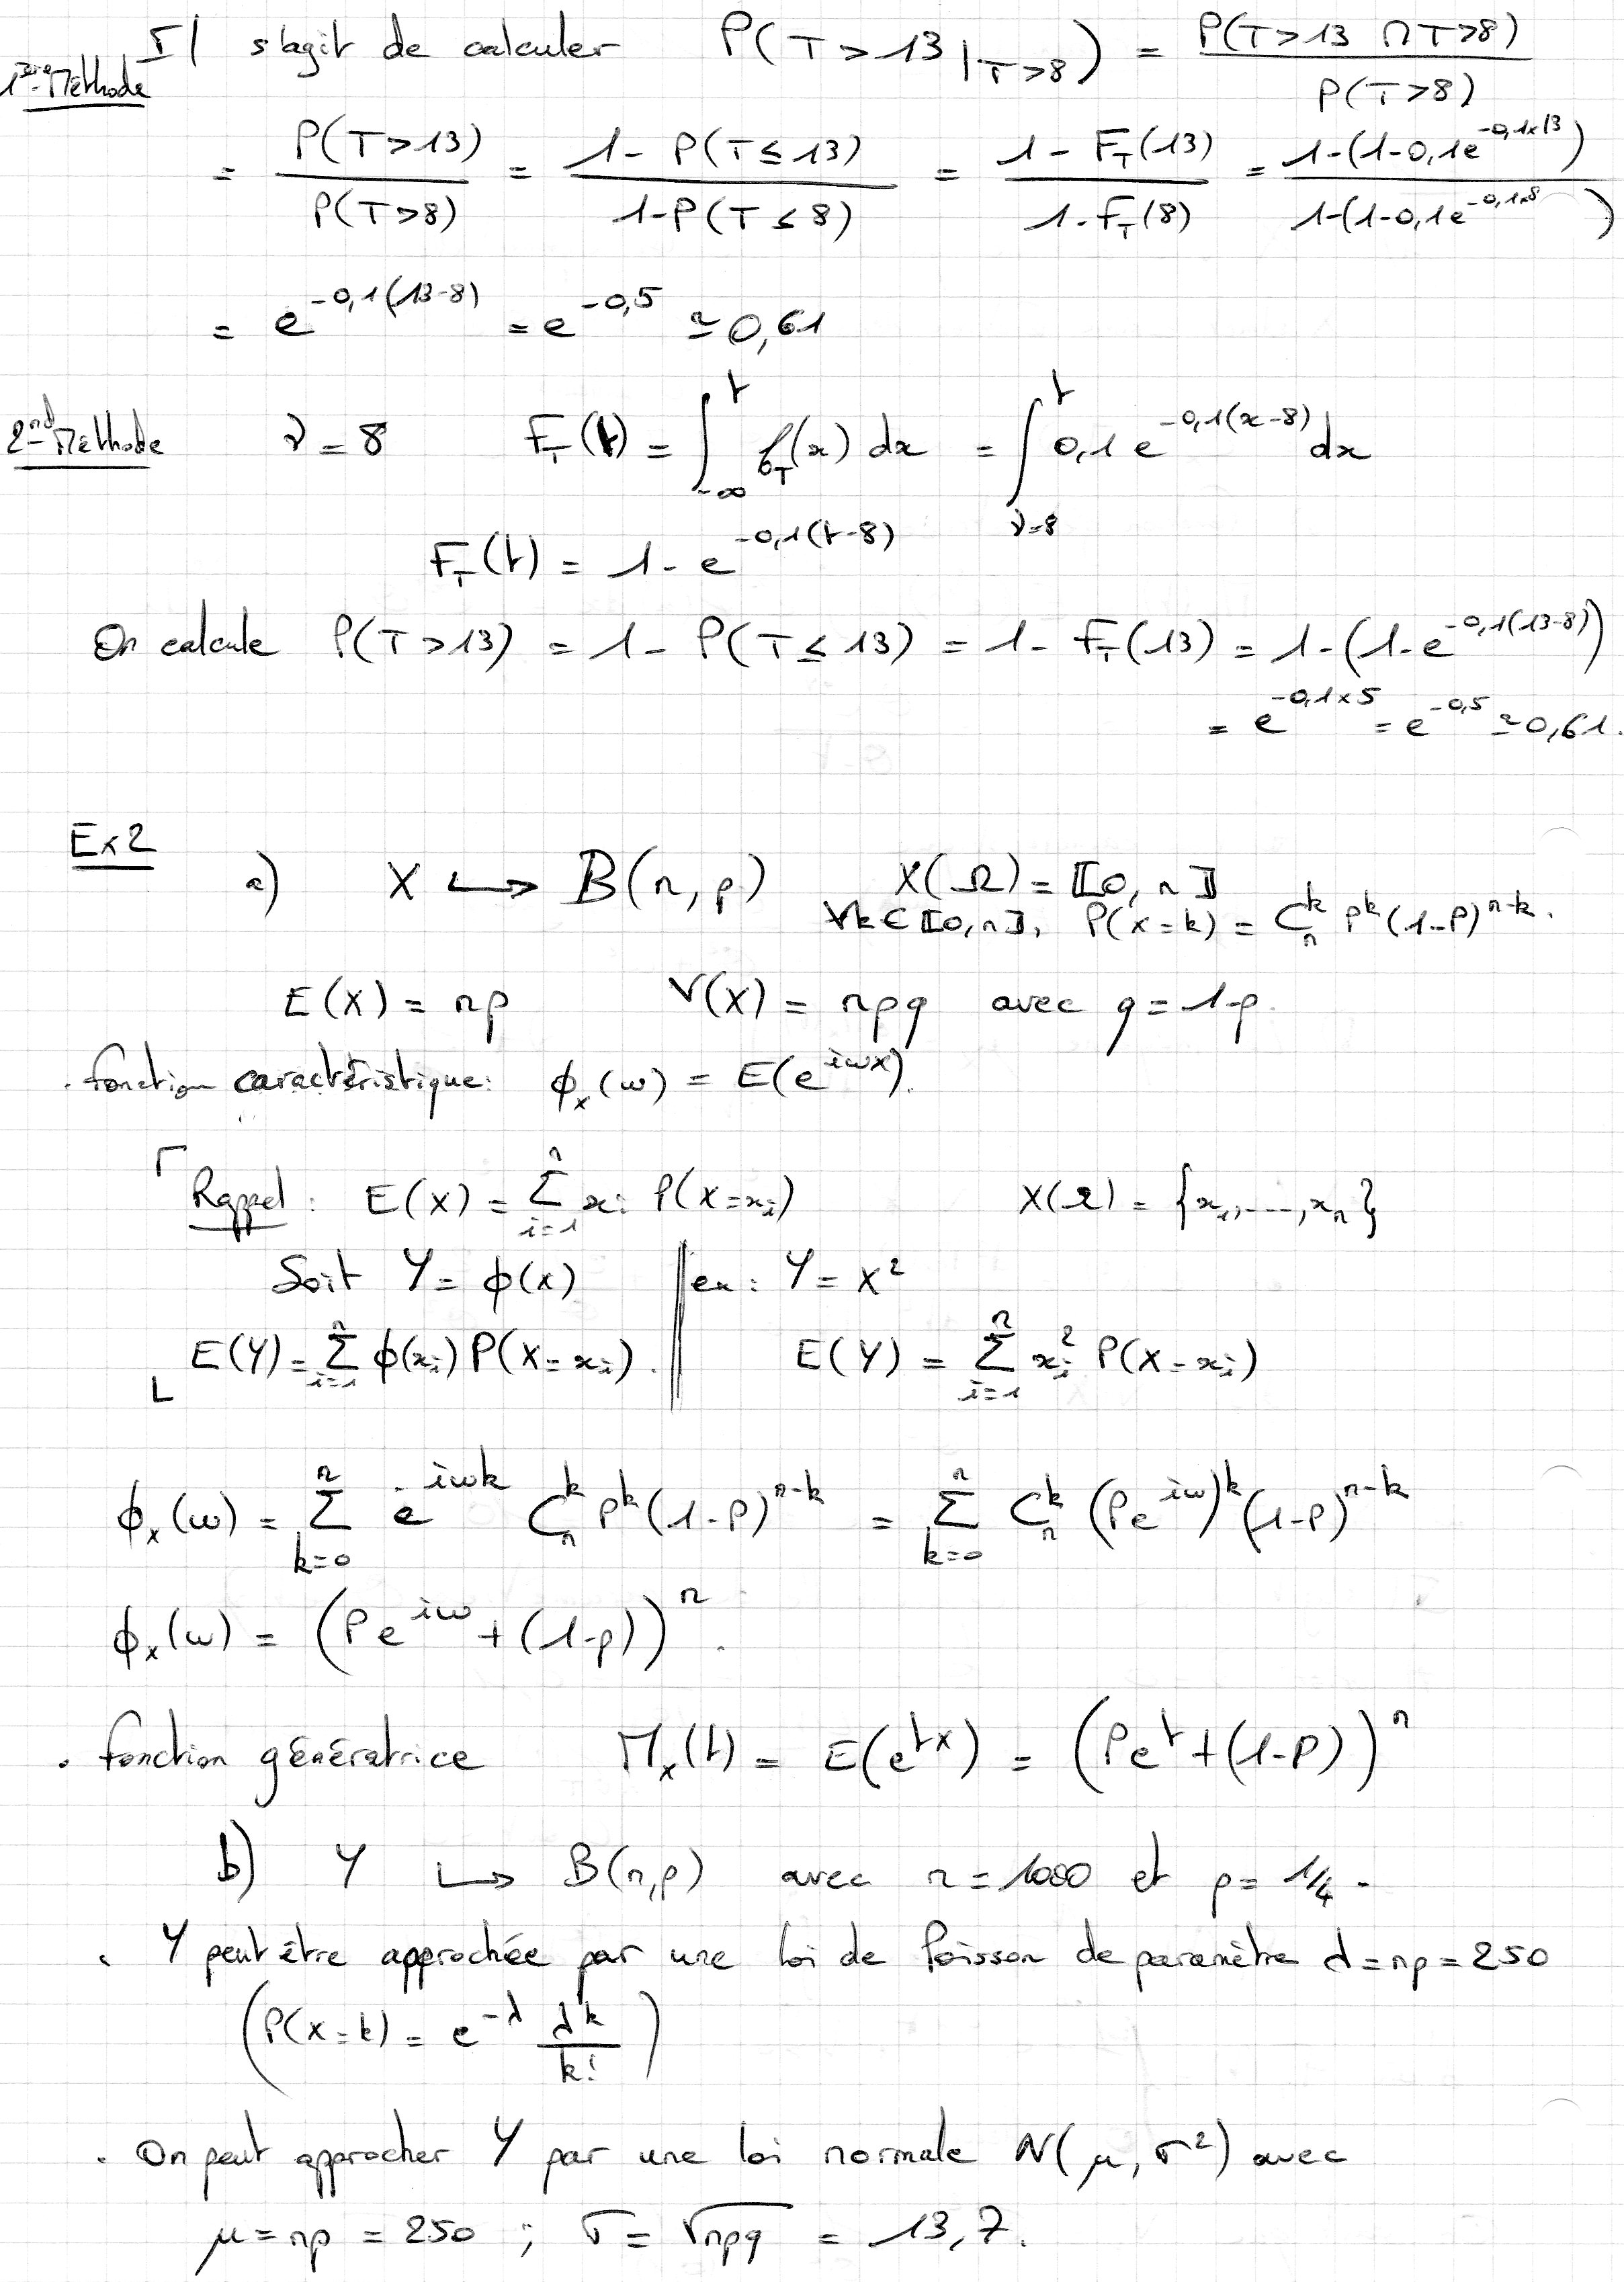 Il s'agit de calculer P(T > 13 |T>8) = P(T>13 ∩ T>8) / P(T>8)
1ère Méthode
= P(T>13) / P(T>8) = 1 - P(T ≤ 13) / 1 - P(T ≤ 8) = 1 - F_T(13) / 1 - F_T(8) = 1-(1-0,1e^{-0,1×13}) / 1-(1-0,1e^{-0,1×8})
= e^{-0,1(13-8)} = e^{-0,5} ≃ 0,61
2nd Méthode γ = 8 F_T(t) = ∫_{-∞}^{t} f_T(x) dx = ∫_{γ=8}^{t} 0,1 e^{-0,1(x-8)} dx
F_T(t) = 1 - e^{-0,1(t-8)}
On calcule P(T > 13) = 1 - P(T ≤ 13) = 1 - F_T(13) = 1 - (1 - e^{-0,1(13-8)})
= e^{-0,1×5} = e^{-0,5} ≃ 0,61.
Ex 2
a) X ↪ B(n, p) X(Ω) = ⟦0, n⟧
∀k ∈ ⟦0, n⟧, P(X=k) = C_n^k p^k (1-p)^{n-k}.
E(X) = np V(X) = npq avec q = 1-p.
. fonction caractéristique: ϕ_x(ω) = E(e^{iωx}).
Rappel : E(X) = Σ_{i=1}^{n} x_i P(X=x_i) X(Ω) = {x_1,----,x_n}
Soit Y = ϕ(x) || ex : Y = X²
E(Y) = Σ_{i=1}^{n} ϕ(x_i) P(X=x_i). || E(Y) = Σ_{i=1}^{n} x_i² P(X=x_i)
ϕ_x(ω) = Σ_{k=0}^{n} e^{iωk} C_n^k p^k (1-p)^{n-k} = Σ_{k=0}^{n} C_n^k (Pe^{iω})^k (1-p)^{n-k}
ϕ_x(ω) = (Pe^{iω} + (1-p))^n.
. fonction génératrice M_x(t) = E(e^{tx}) = (Pe^t + (1-P))^n
b) Y ↪ B(n,p) avec n = 1000 et p = 1/4.
. Y peut être approchée par une loi de Poisson de paramètre λ = np = 250
(P(X=k) = e^{-λ} λ^k / k!)
. On peut approcher Y par une loi normale N(μ, σ²) avec
μ = np = 250 ; σ = √npq = 13,7.